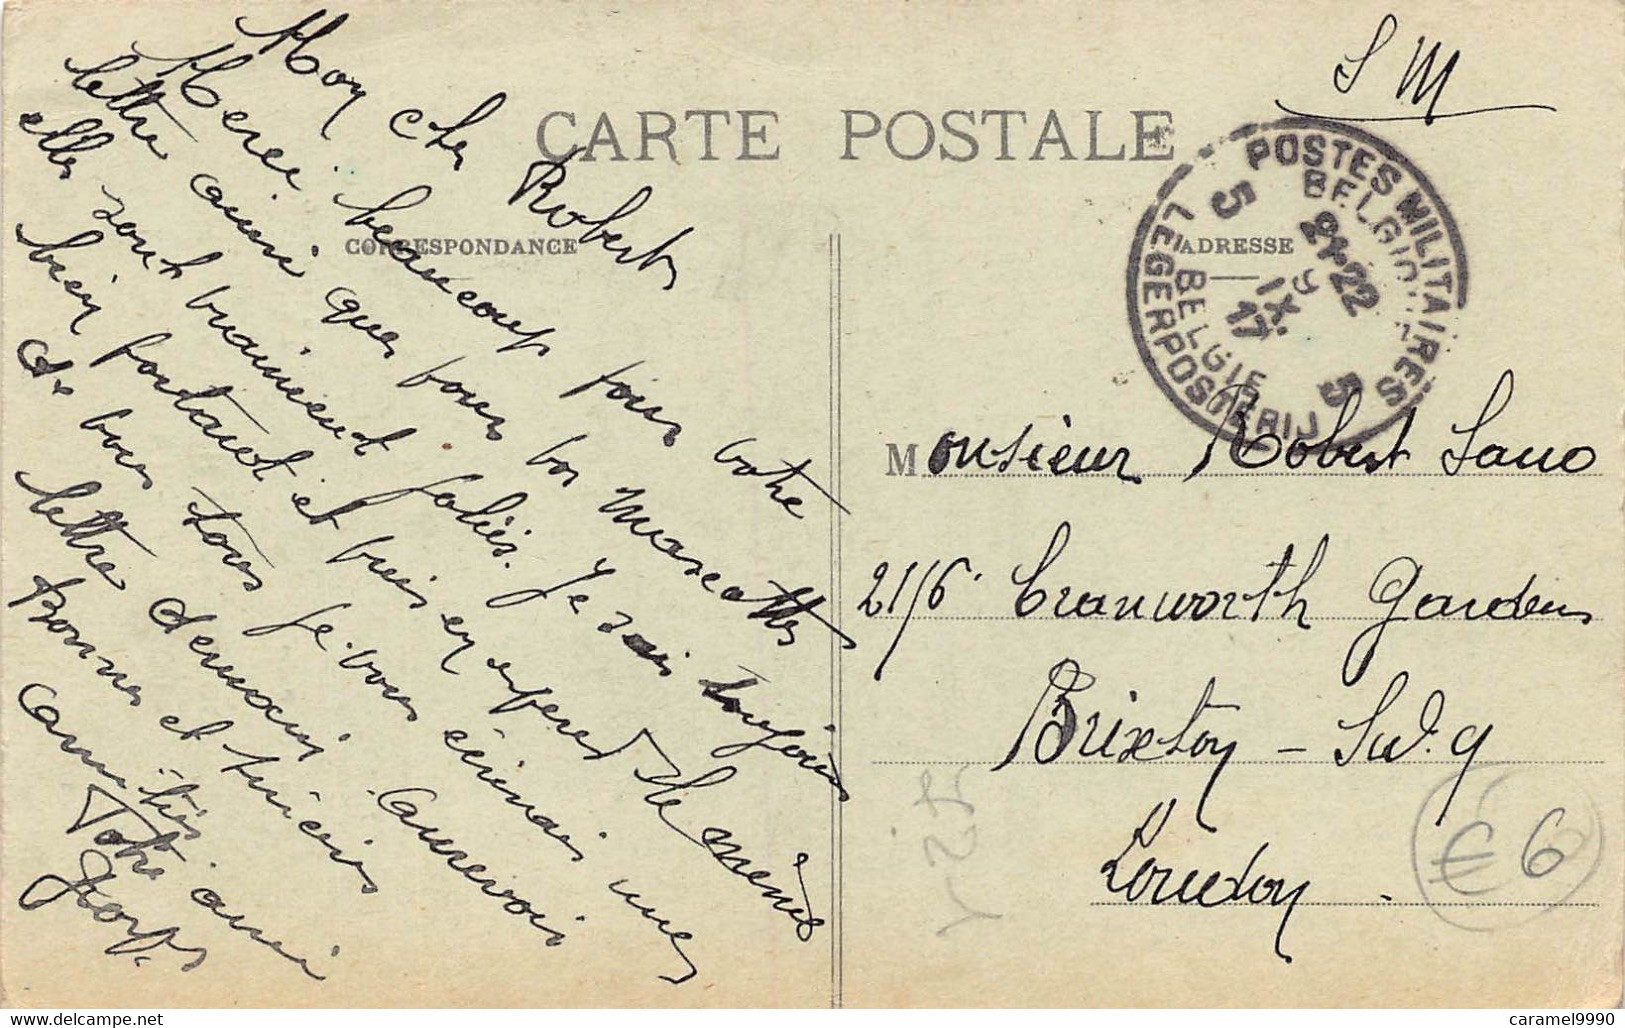 CARTE POSTALE
CORRESPONDANCE
ADRESSE
S M
POSTES MILITAIRES
BELGIQUE
5
21-22
9
IX.
17
5
BELGIE
LEGERPOSTERIJ
Mon cher Robert
Merci beaucoup pour votre
lettre ainsi que pour vos mascottes
elles sont vraiment jolies. Je suis toujours
bien portant et puis en espérer de même
de vous tous je vous écrirai une
lettre demain. Aurevoir
Bonnes et sincères
amitiés
Votre ami
Monsieur Robert Sano
21/6 Cranworth Gardens
Brixton - S.W. 9
London -
€ 6
caramel9990